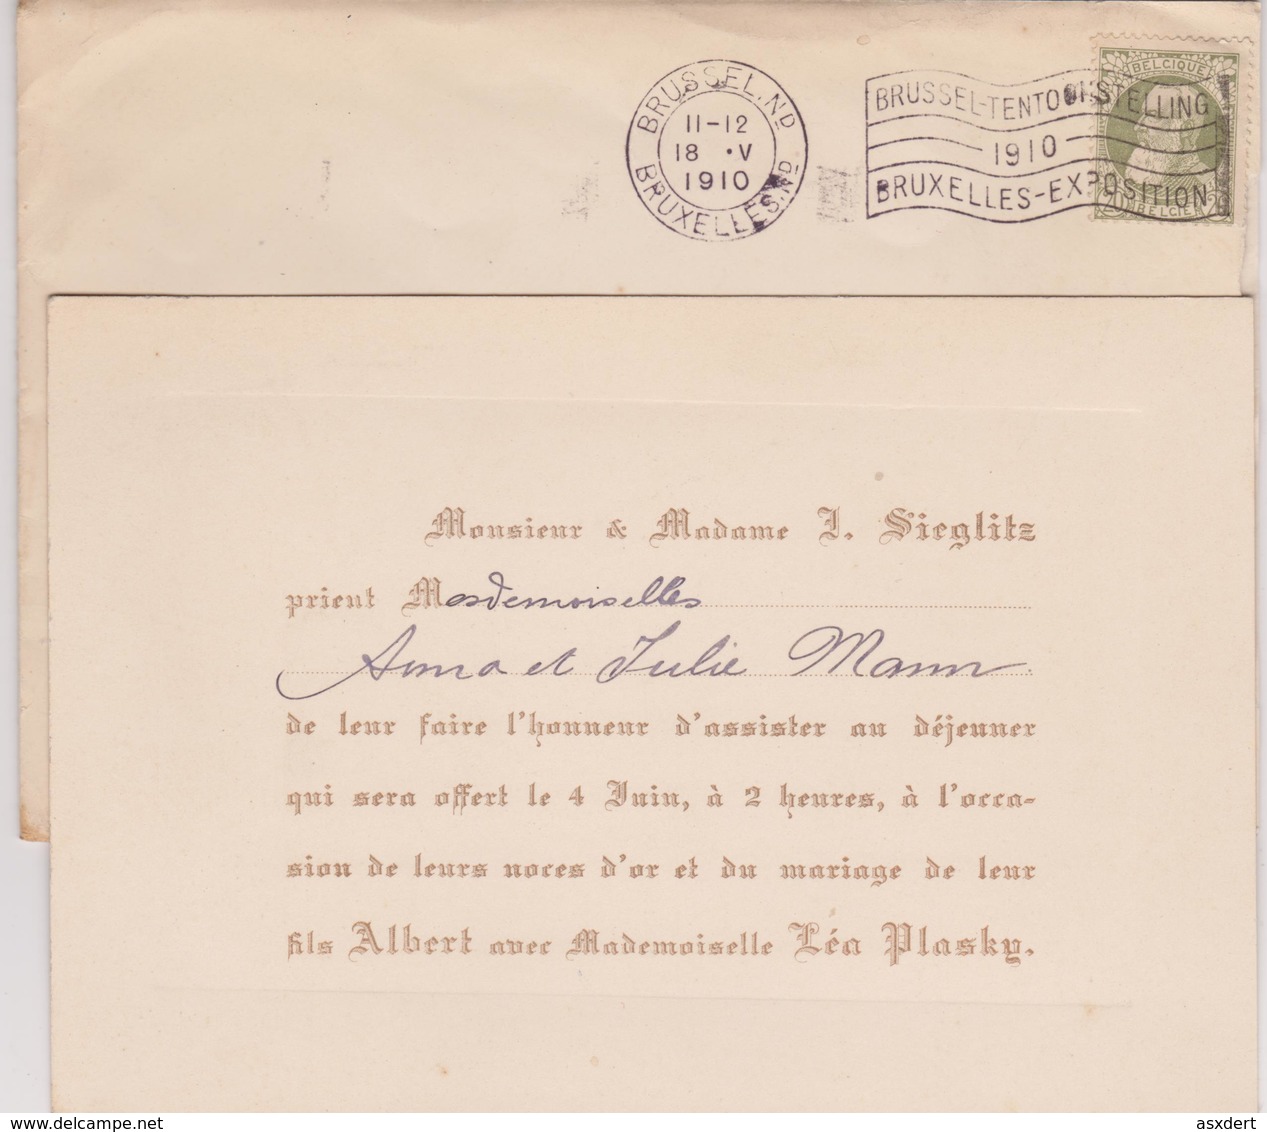 BRUSSEL.ND
11-12
18 •V
1910
BRUXELLES.ND
BRUSSEL-TENTOONSTELLING
1910
BRUXELLES-EXPOSITION
BELGIQUE
BELGIË
Monsieur & Madame J. Sieglitz
prient Mesdemoiselles
Anna et Julie Mann
de leur faire l'honneur d'assister au déjeuner
qui sera offert le 4 Juin, à 2 heures, à l'occa-
sion de leurs noces d'or et du mariage de leur
fils Albert avec Mademoiselle Léa Plasky.
www.delcampe.net
asxdert